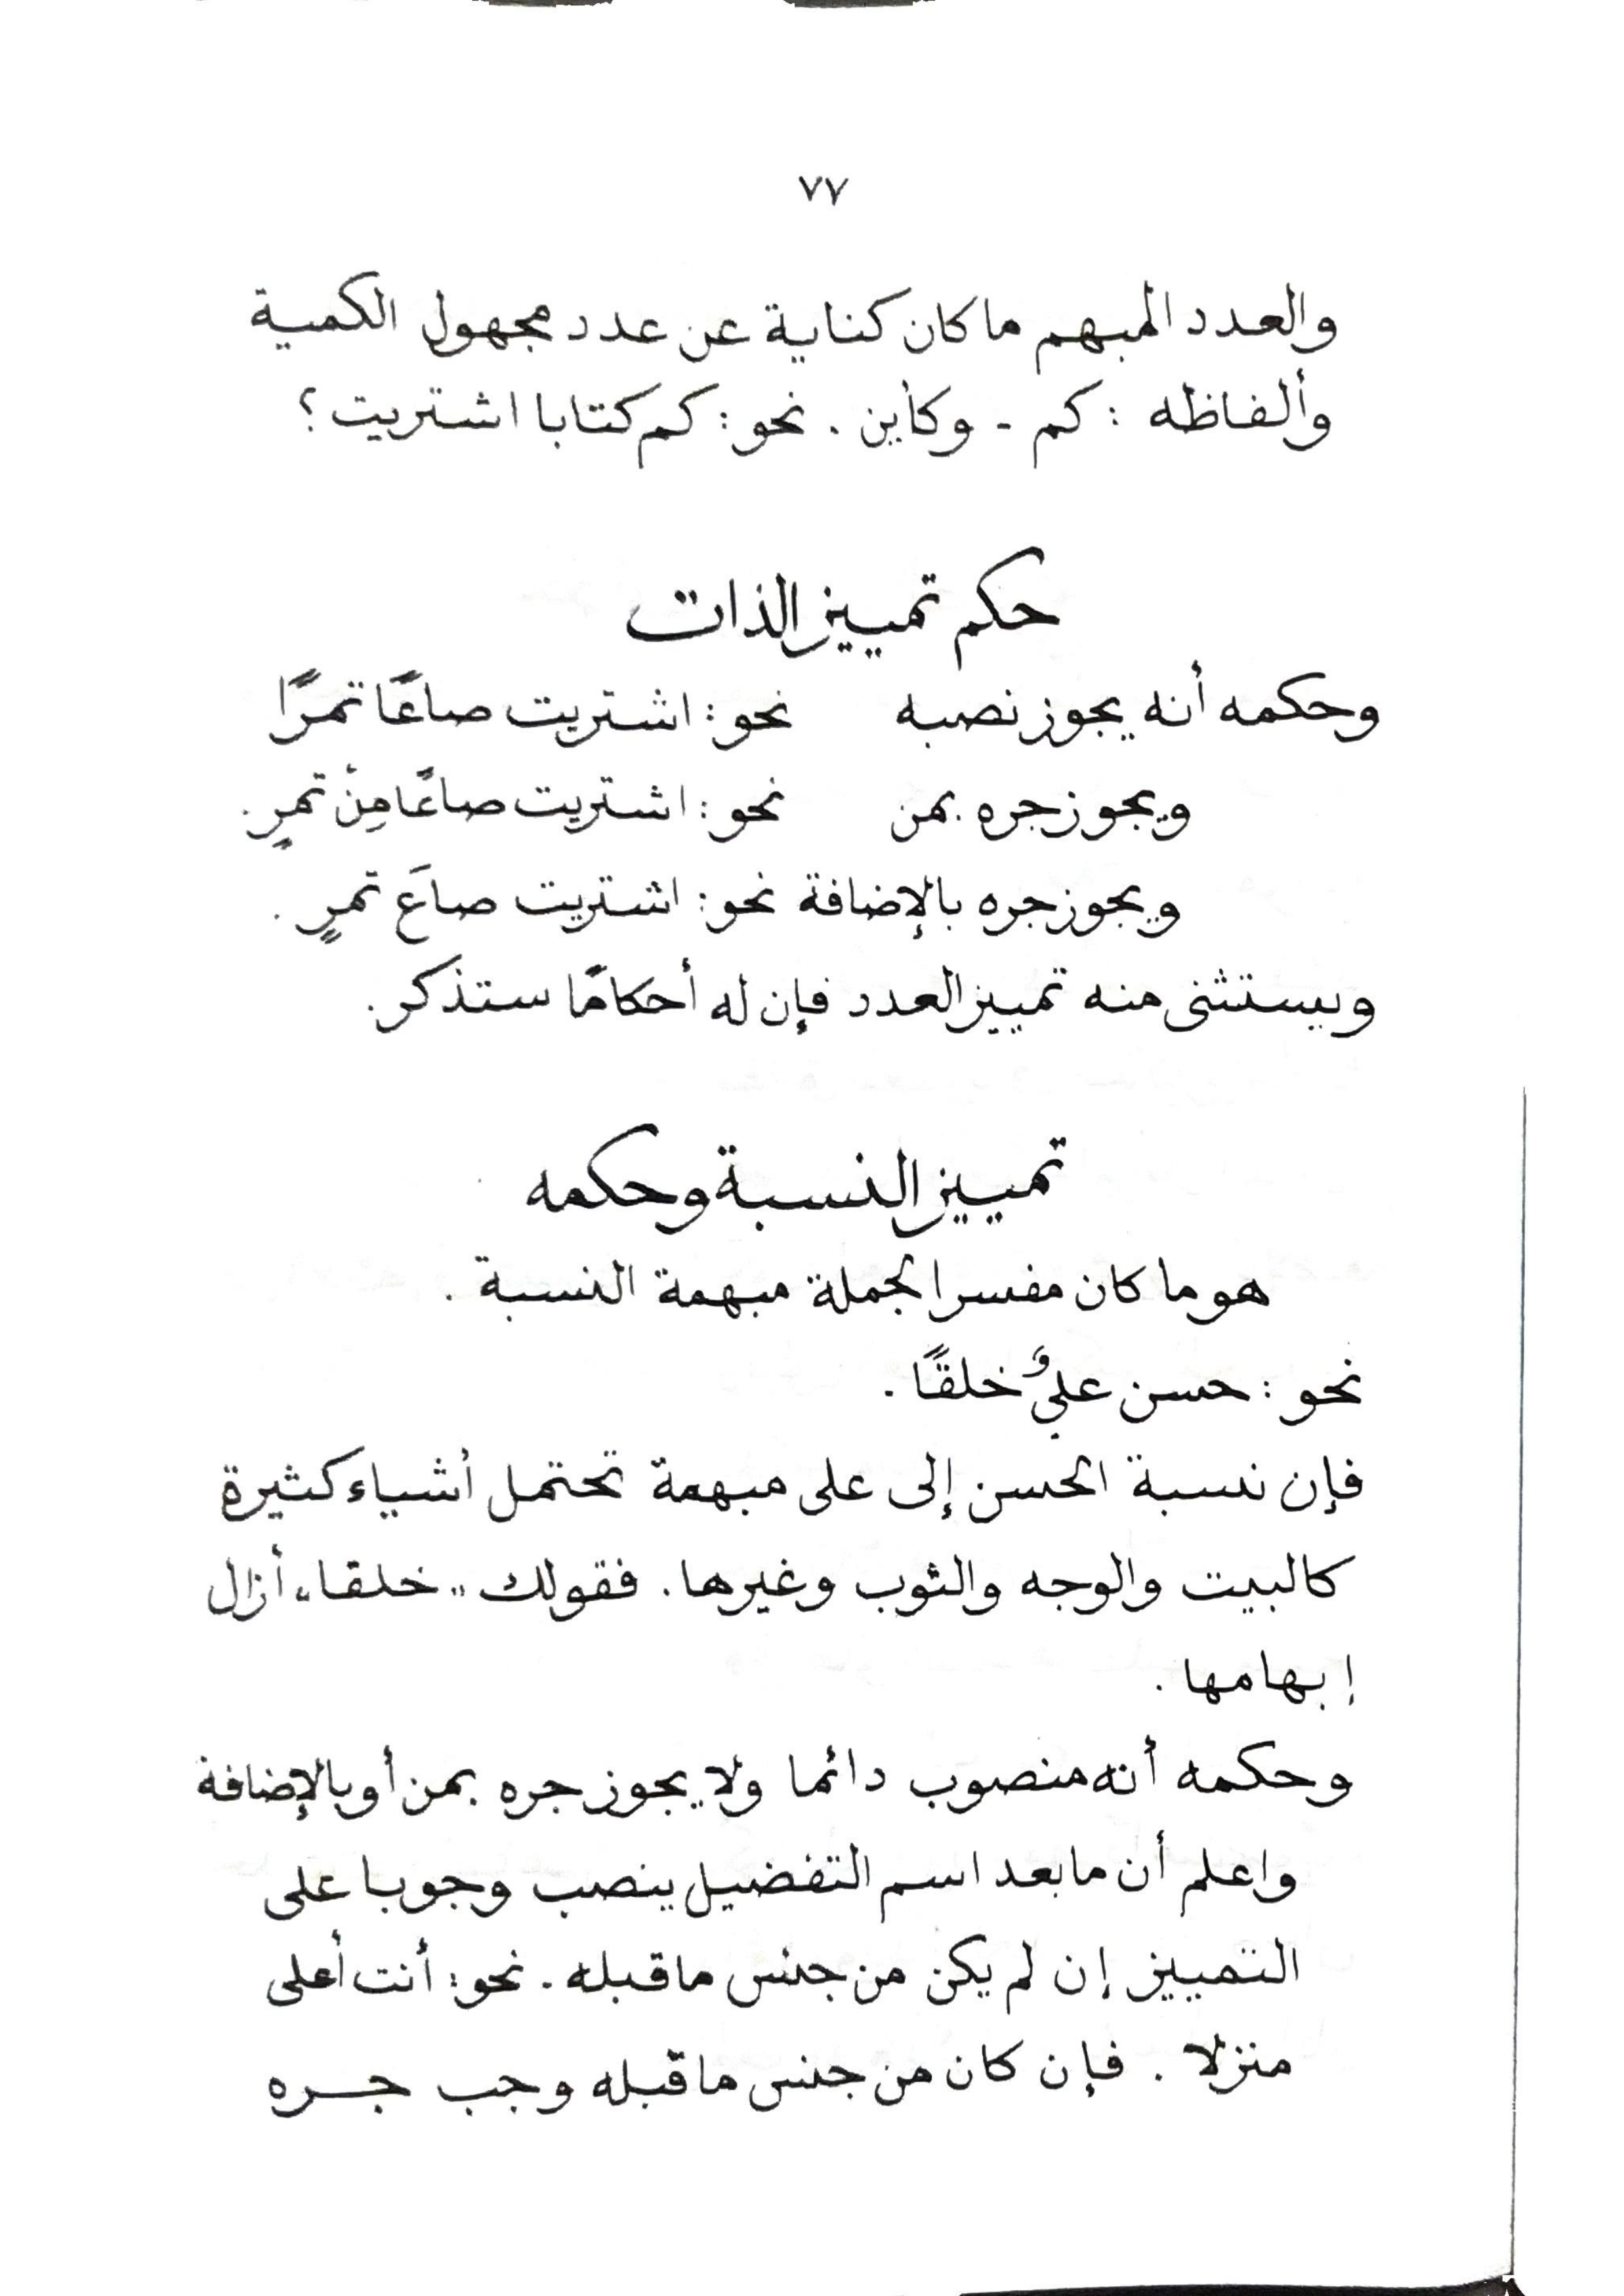 ٧٧
والعدد المبهم ما كان كناية عن عدد مجهول الكمية
وألفاظه : كم - وكأين . نحو : كم كتابا اشتريت ؟
حكم تمييز الذات
وحكمه أنه يجوز نصبه نحو : اشتريت صاعًا تمرًا
ويجوز جره بمن نحو : اشتريت صاعًا مِنْ تمرٍ .
ويجوز جره بالإضافة نحو : اشتريت صاعَ تمرٍ .
ويستثنى منه تمييز العدد فإن له أحكامًا ستذكر .
تمييز النسبة وحكمه
هو ما كان مفسرا لجملة مبهمة النسبة .
نحو : حسن عليٌ خلقًا .
فإن نسبة الحسن إلى على مبهمة تحتمل أشياء كثيرة
كالبيت والوجه والثوب وغيرها . فقولك " خلقا " أزال
إبهامها .
وحكمه أنه منصوب دائما ولا يجوز جره بمن أو بالإضافة
واعلم أن ما بعد اسم التفضيل ينصب وجوبا على
التمييز إن لم يكن من جنس ما قبله . نحو : أنت أعلى
منزلا . فإن كان من جنس ما قبله وجب جره